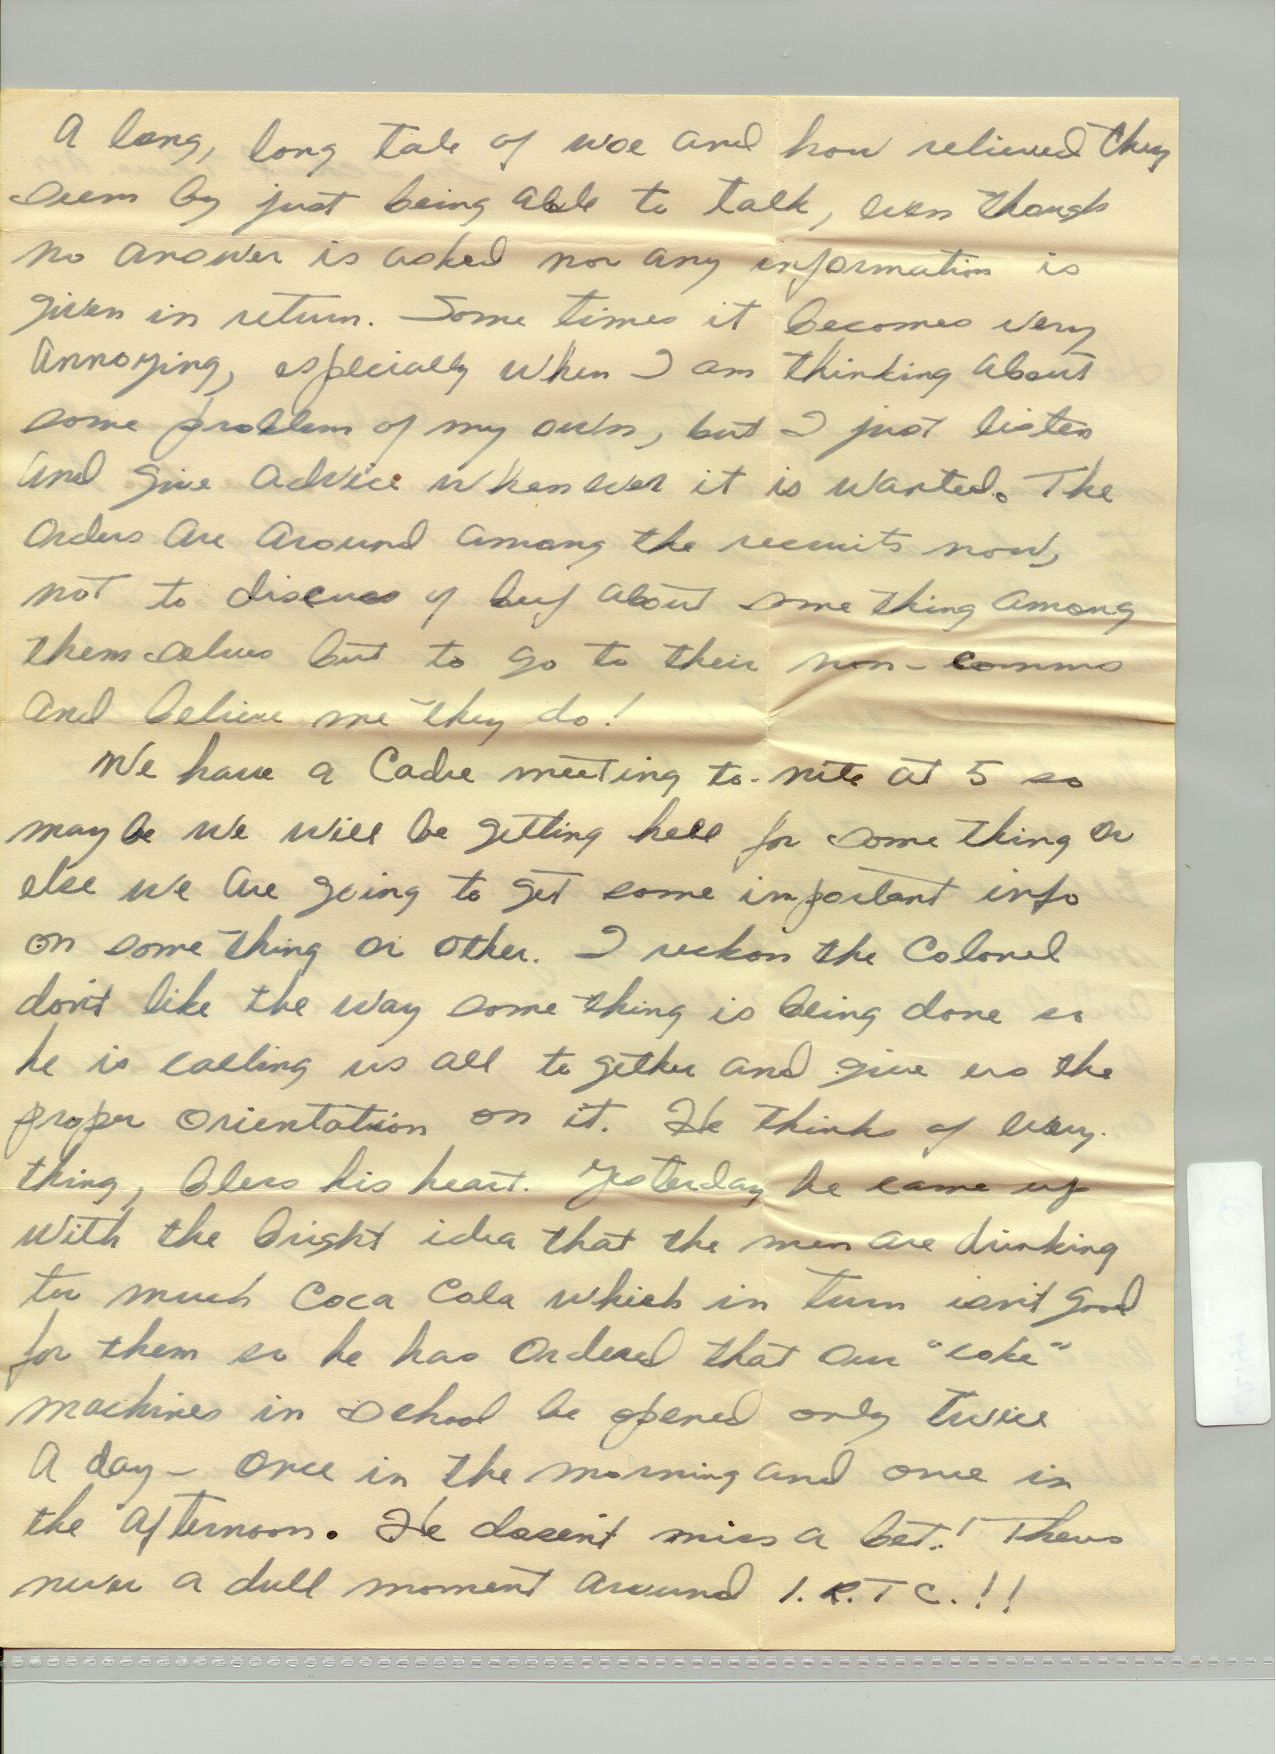 A long, long tale of woe and how relieved they
seem by just being able to talk, even though
no answer is asked nor any information is
given in return. Some times it becomes very
annoying, especially when I am thinking about
some problem of my own, but I just listen
and give advice whenever it is wanted. The
orders are around among the recruits now,
not to discuss y beef about some thing among
them selves but to go to their non-comms
and believe me they do!
We have a Cadre meeting to-nite at 5 so
may be we will be getting hell for some thing or
else we are going to get some important info
on some thing or other. I reckon the Colonel
don't like the way some thing is being done so
he is calling us all to gether and give us the
proper orientation on it. He thinks of every-
thing, bless his heart. Yesterday he came up
with the bright idea that the men are drinking
to much Coca Cola which in turn isn't good
for them so he has ordered that our "coke"
machines in school be opened only twice
a day - once in the morning and once in
the afternoon. He doesen't miss a bet! Theres
never a dull moment around I.R.T.C.!!